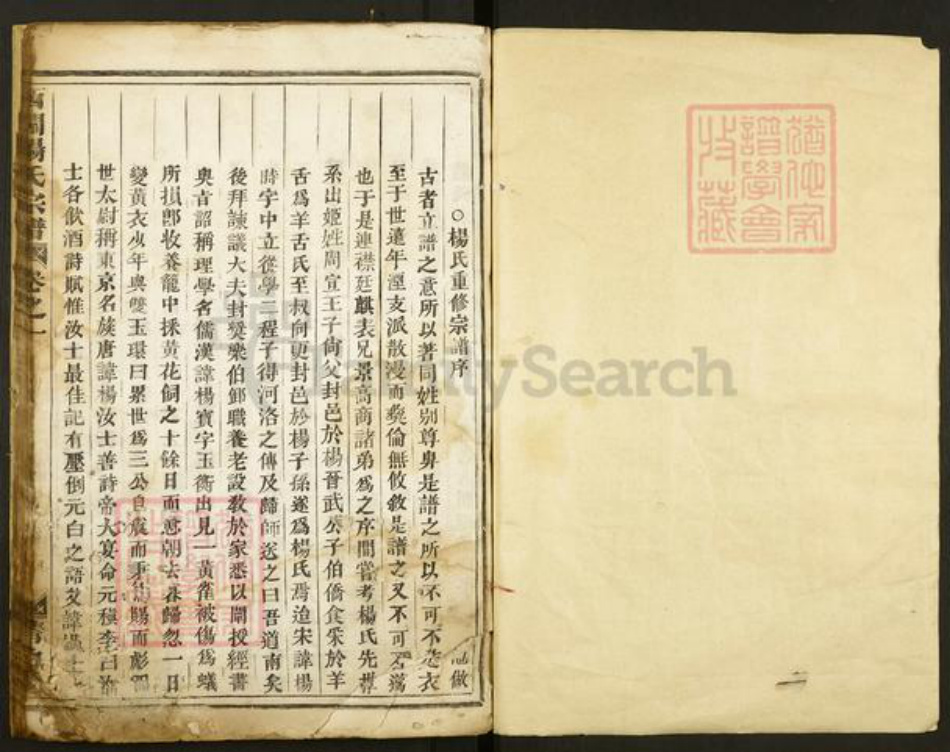 猶他家
譜學會
收藏
楊氏重修宗譜序
古者立譜之意所以著同姓别尊卑是譜之所以不可不
至于世遠年湮支派散漫而彜倫無攸敘是譜之又不可不
也于是連襟廷麒表兄景高商諸弟爲之序間嘗考楊氏先世
系出姬姓周宣王子尙父封邑於楊晉武公子伯僑食采於羊
舌爲羊舌氏至叔向更封邑於楊子孫遂爲楊氏焉迨宋諱楊
時字中立從學二程子得河洛之傳及歸師送之曰吾道南矣
後拜諫議大夫封 樂伯卸職養老設敎於家悉以闡授經書
奥旨詔稱理學名儒漢諱楊寳字玉衡出見一黃雀被傷爲蟻
所損卽收養籠中採黃花飼之十餘日而 朝去暮歸忽一日
變黃衣少年與雙玉環曰累世爲三公自震而秉 賜而彪四
世太尉稱東京名族唐諱楊汝士善詩帝大宴命元稹李
士各飲酒詩賦惟汝士最佳記有壓倒元白之語爻諱楊士
楊氏宗譜 卷之一
FamilySearch